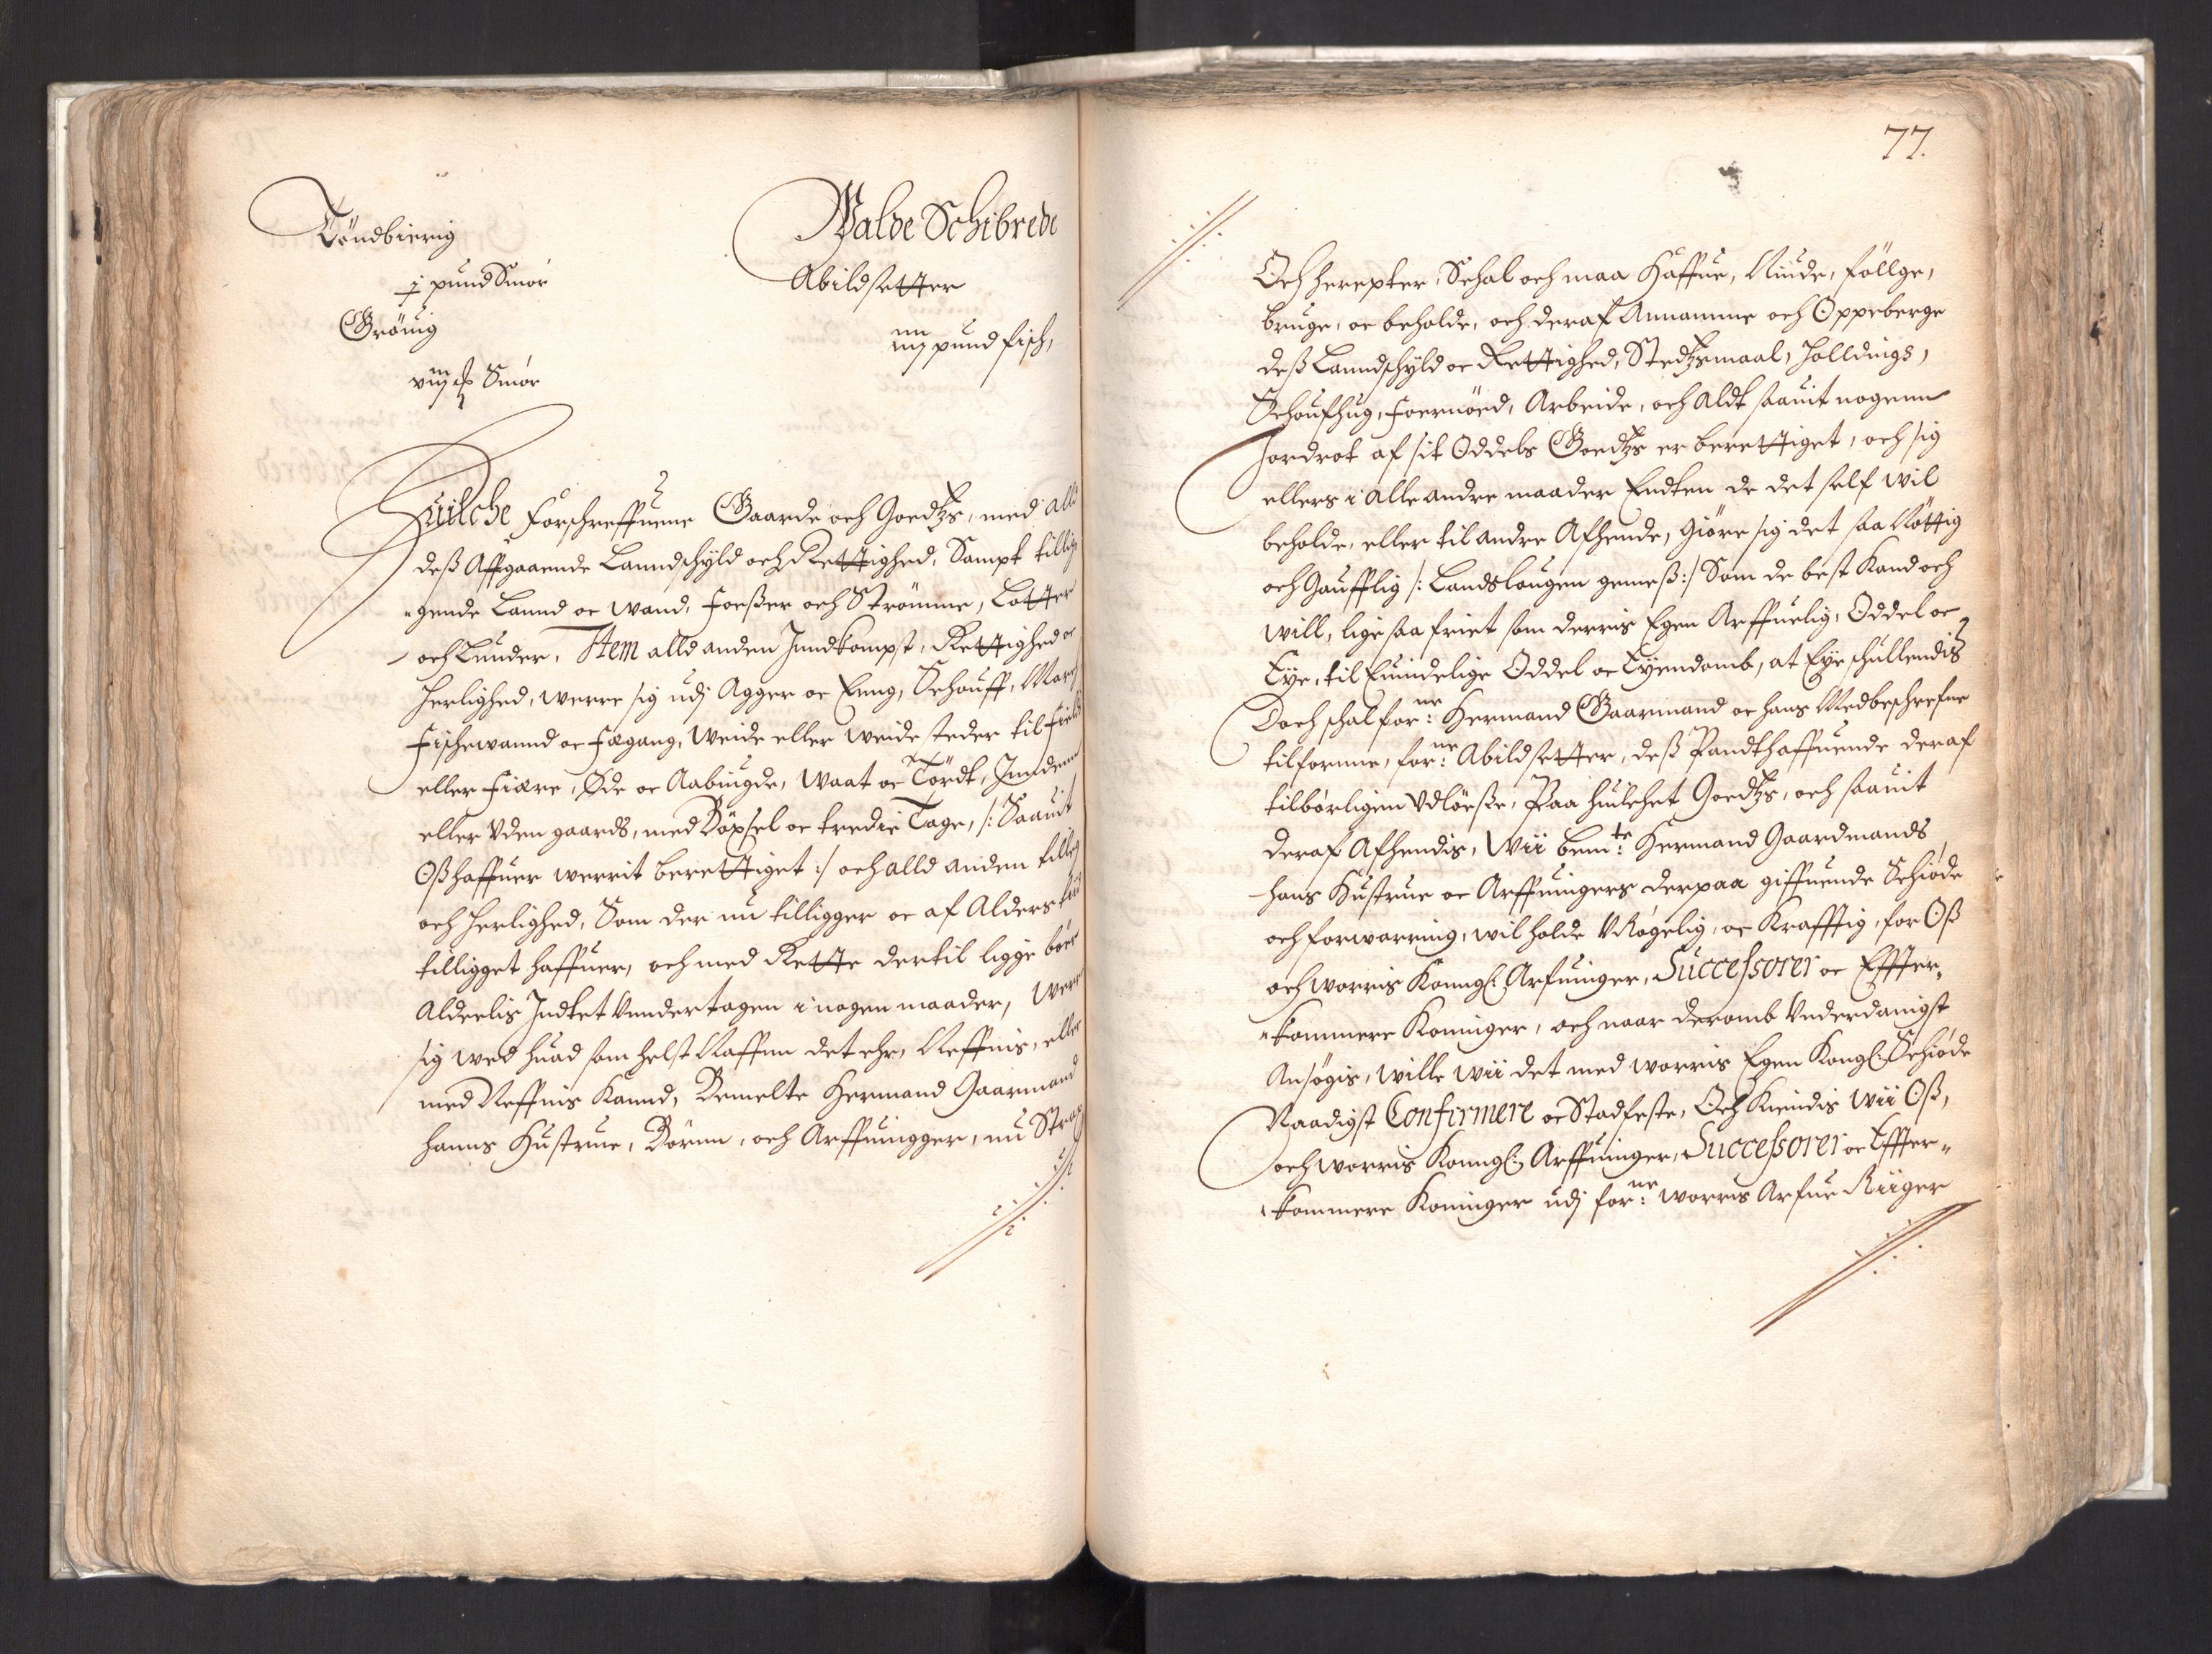 Töndbierig
j pund Smör
Grönig
viij ... Smör
Walde Schibrede
Abildsetter
iiij pund fisch,
Huilche forschreffuene Gaarde och Goedtzs, med all
deß Affgaaende Lanndschyld och Rettighed, Sampt tillig
"gende Lannd oc wand, foeßer och Strömme, Lotter
och Lunder, Item alld anden Inndkompst, Rettighed oc
herlighed, werre sig udj Agger oc Enng, Schouff, Marc
fischewannd oc fægang, weide eller weide steder til field
eller fiære, Øde oc Aabugde, waat oc Tördt, Innden
eller Vden gaards, med Böxsel oc tredie Tage, /: Saauit
Oß haffuer werrit berettiget :/ och alld anden tilleg
och herlighed, Som der nu tilligger oc af Alders tid
tilligget haffuer, och med Rette dertil ligge böer
Alderlis Indtet Vundertagen i nogen maader, were
sig wed huad som helst Naffnn det ehr, Neffnis, eller
med Neffnis Kannd, Bemelte Hermand Gaarmand
hanns Hustrue, Börnn, och Arffuingger, nu Strax
77.
Och hereffter, Schal och maa Haffue, Niude, föllge,
bruge, oc beholde, och deraf Annamme och Oppeberge
deß Lanndschyld oc Rettighed, Stedtzemaal, holldings,
Schoufhug, foernöed, Arbeide, och aldt saauit nogenn
Jordrot af sit Oddels Goedtzs er berettiget, och sig
ellers i alle andre maader Endten de det self wil
beholde, eller til andre Afhende, Giöre sig det saa Nöttig
och Gaufflig /: Landslougen gemeß :/ Som de best Kand och
will, lige saa friet som derris Egen Arffuelig, Oddel oc
Eye, til Euindelige Oddel oc Eyendomb, at Eye schullendis
Doch schal forne: Hermand Gaarmand oc hans Medbeschrefne
tilfornne, forne: Abildsetter, deß Pandthaffuende deraf
tilbörligen Vdlöese, Paa huilchet Goedtzs, och saauit
deraf Afhendis, Wii bemte: Hermand Gaardmands
hans Hustrue oc Arffuingers derpaa giffuende Schiöde
och forwarring, wil holde Vrögelig, oc Krafftig, for Oß
och worris Konngl: Arfuinger, Successorer oc Effter"
"kommere Koninger, och naar deromb Vnderdanigst
Ansögis, wille wii det med worris Egen Kongl: Schiöde
Naadigst Confirmere oc Stadfeste, Och Kiendis Wii Oß,
och worris Konngl: Arffuinger, Successorer oc Effter"
"kommere Koninger udj forne: worris Arfue Riiger